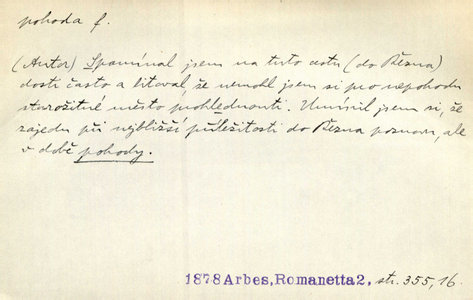 pohoda f.
(Autor) Spomínal jsem na tuto cestu (do Brzna)
dosti často a litoval, že nemohl jsem si pro nepohodu
starožitné město prohlédnouti. Umínil jsem si, že
zajedu při nejbližší příležitosti do Brzna poznovu, ale
v době pohody.
1878 Arbes, Romanetta 2, str. 355, 16.